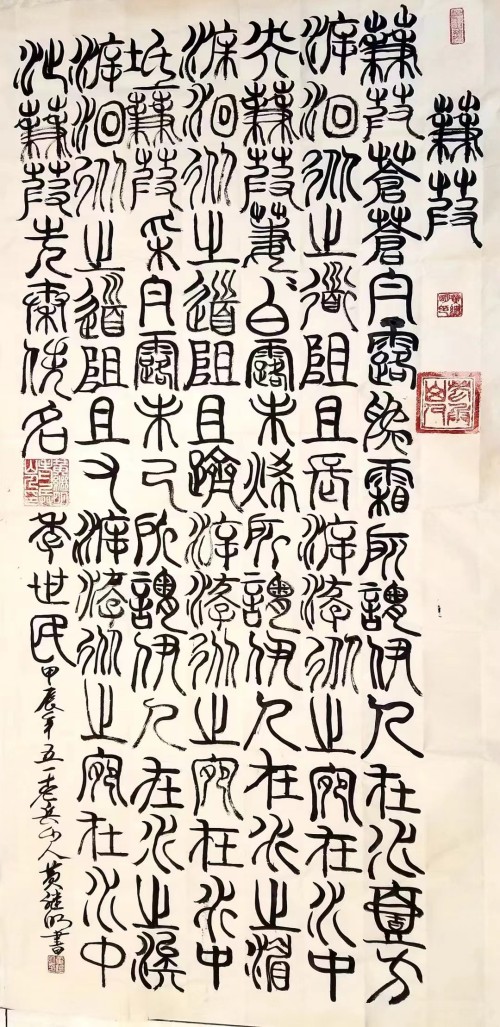 蒹葭
蒹葭蒼蒼白露為霜所謂伊人在水壹方
溯洄從之道阻且長溯游從之宛在水中
央蒹葭萋〻白露未晞所謂伊人在水之湄
溯洄從之道阻且躋溯游從之宛在水中
坻蒹葭采白露未已所謂伊人在水之涘
溯洄從之道阻且右溯游從之宛在水中
沚蒹葭先秦佚名
世民
甲辰年五一老兵人黄继明書